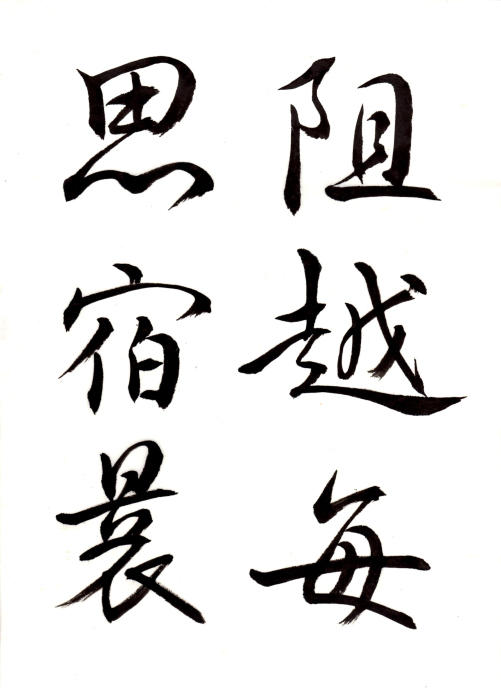 阻越每
思宿晨